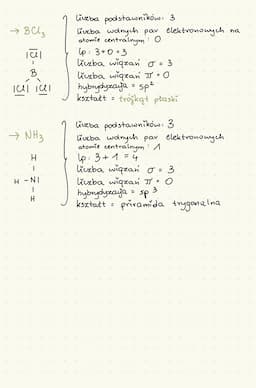 → BCl₃
liczba podstawników: 3
liczba wolnych par elektronowych na
atomie centralnym: 0
lp: 3+0=3
liczba wiązań σ = 3
liczba wiązań π = 0
hybrydyzacja = sp²
kształt = trójkąt płaski
|Cl|
B
|Cl| |Cl|
→ NH₃
liczba podstawników: 3
liczba wolnych par elektronowych
atomie centralnym: 1
lp: 3+1=4
liczba wiązań σ = 3
liczba wiązań π = 0
hybrydyzacja = sp³
kształt = piramida trygonalna
H
H - N|
H